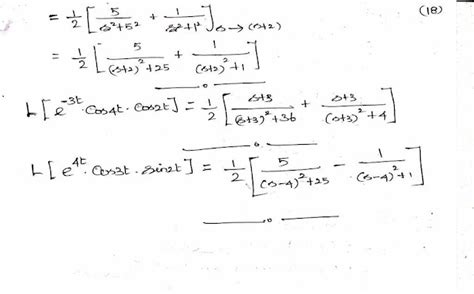 = 1/2 [ 5/(s²+5²) + 1/(s²+1²) ] s→(s+2) (18)
= 1/2 [ 5/((s+2)²+25) + 1/((s+2)²+1) ]
L[e^{-3t}. Cos4t. Cos2t] = 1/2 [ (s+3)/((s+3)²+36) + (s+3)/((s+3)²+4) ]
L[e^{4t}. Cos3t. sin2t] = 1/2 [ 5/((s-4)²+25) - 1/((s-4)²+1) ]